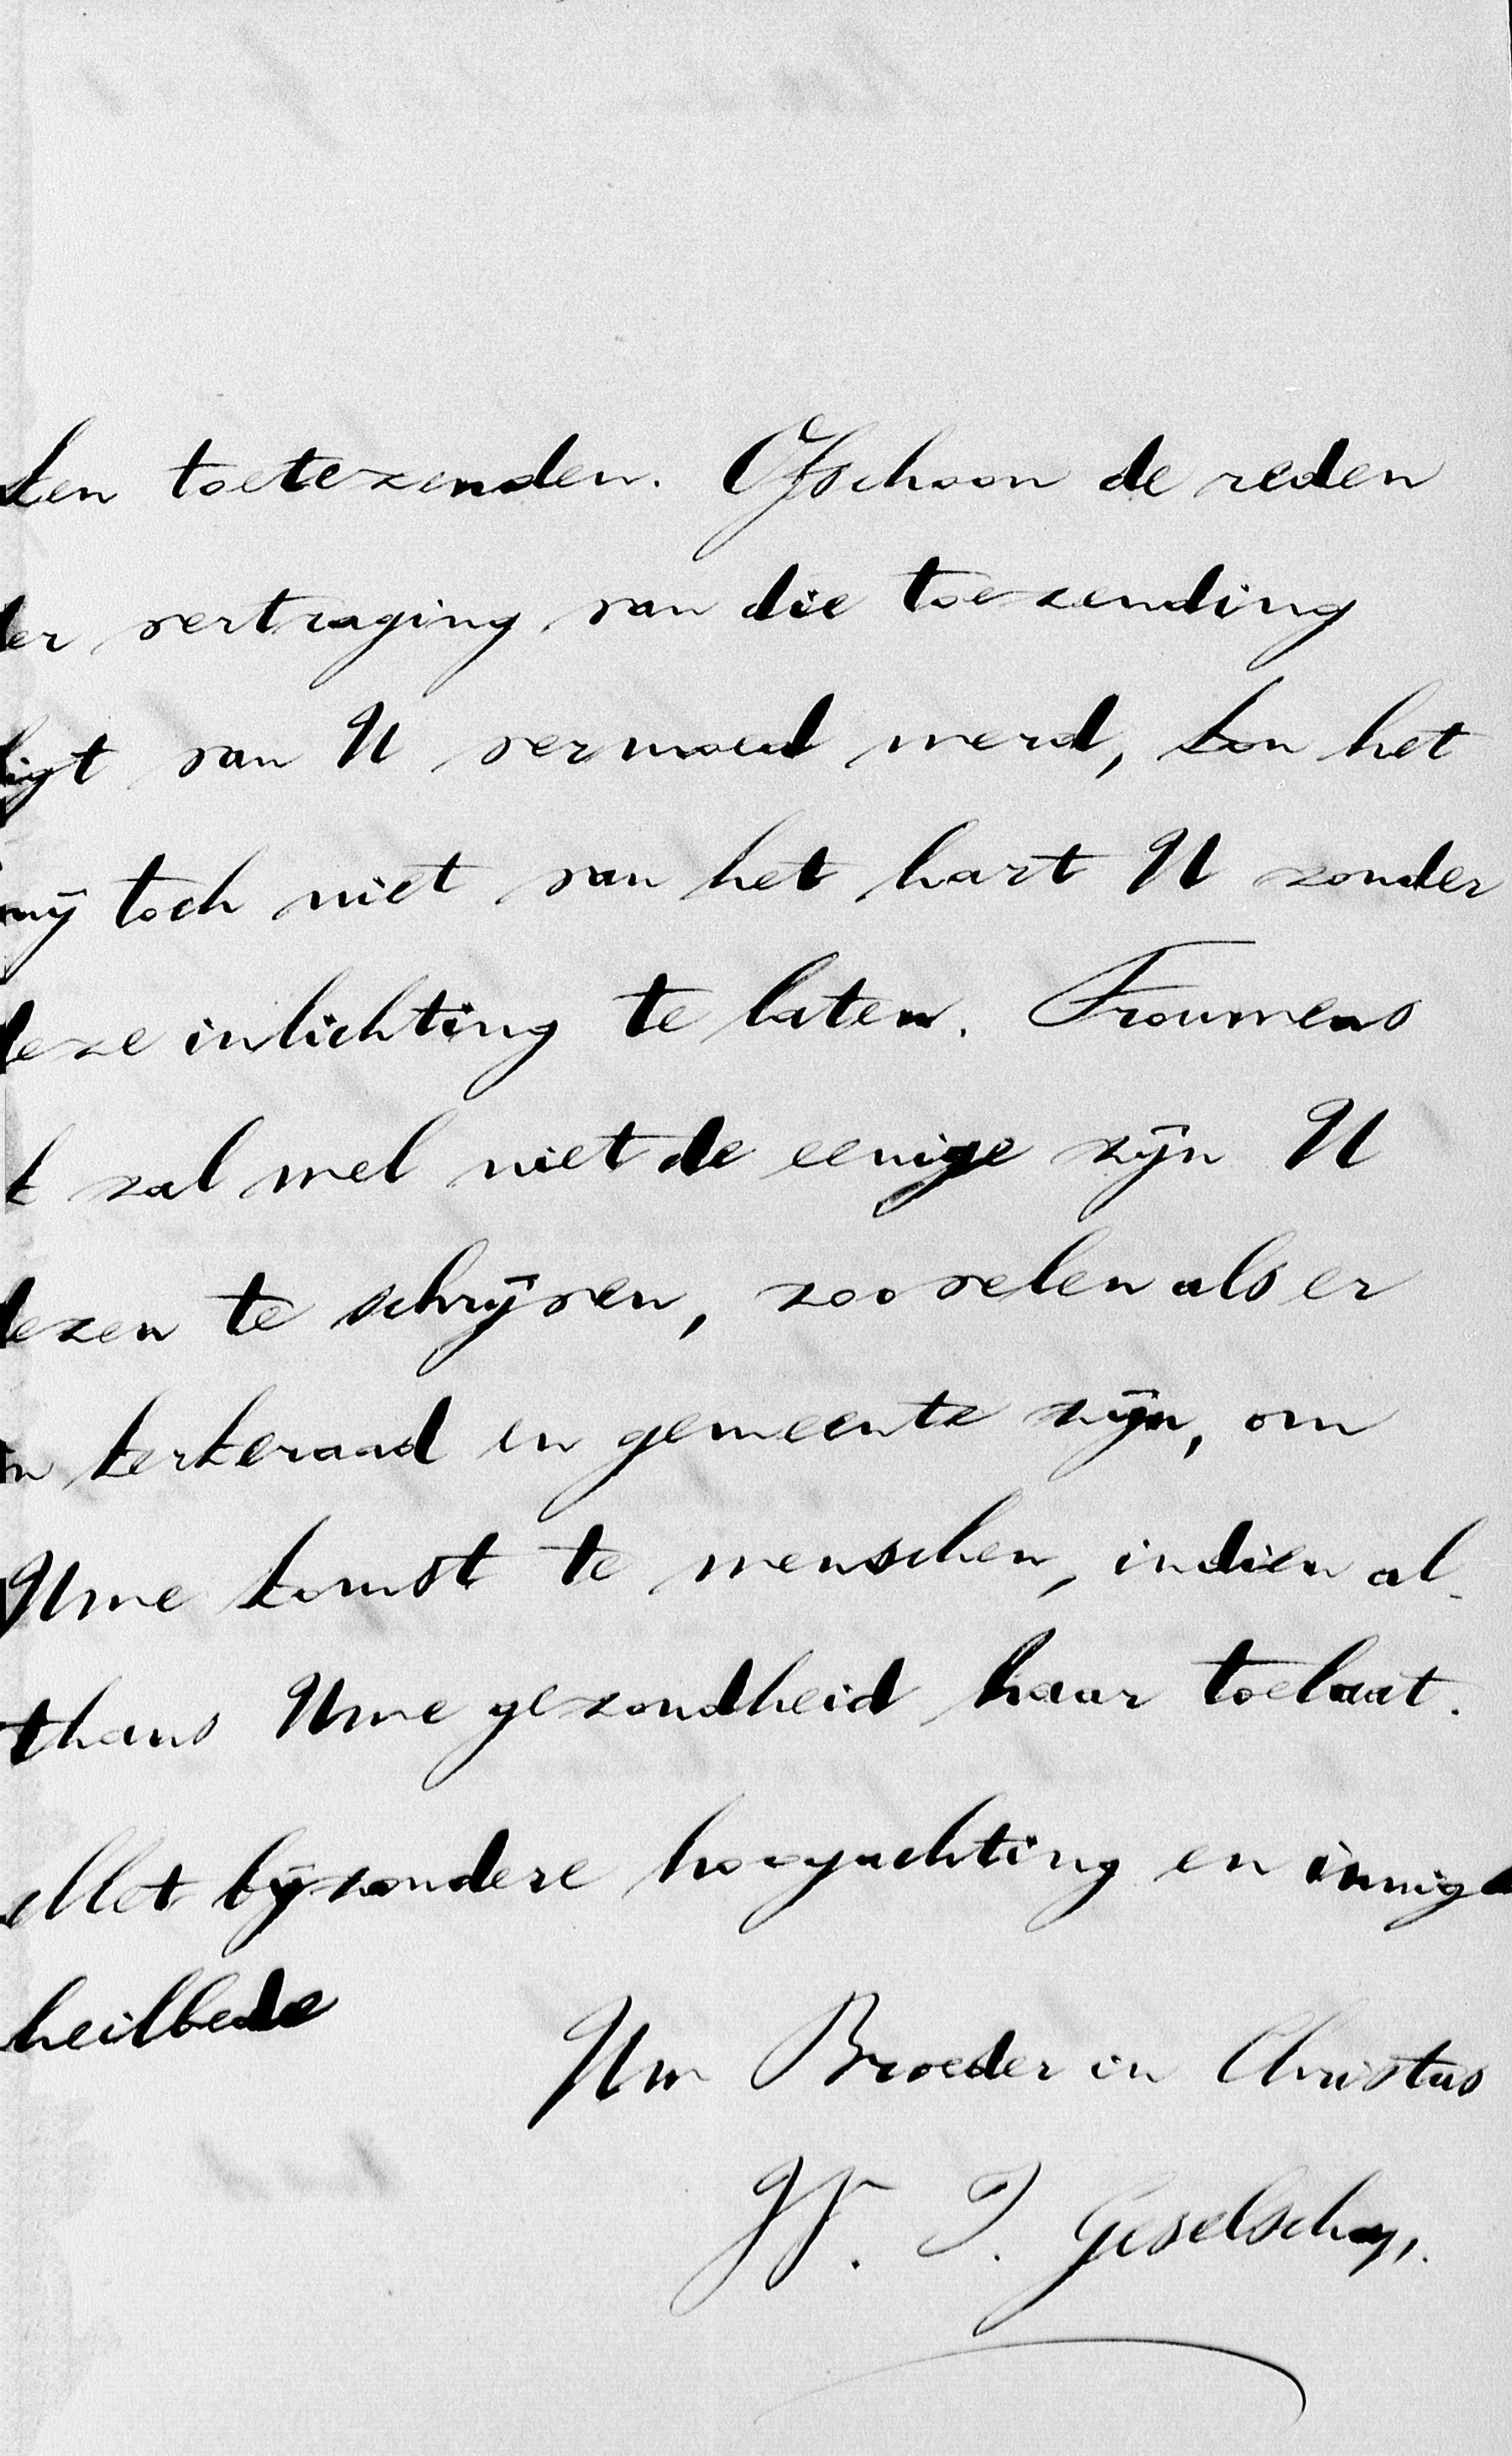 ken toetezenden. Ofschoon de reden
der vertraging van die toezending
ligt van U vermoed werd, kon het
mij toch niet van het hart U zonder
deze inlichting te laten. Trouwens
k zal wel niet de eenige zijn U
dezen te schrijven, zoovelen als er
in kerkeraad en gemeente zijn, om
Uwe komst te wenschen, indien al-
thans Uwe gezondheid haar toelaat.
Met bijzondere hoogachting en innige
heilbede
Uw Broeder in Christus
W. J. Geselschap.